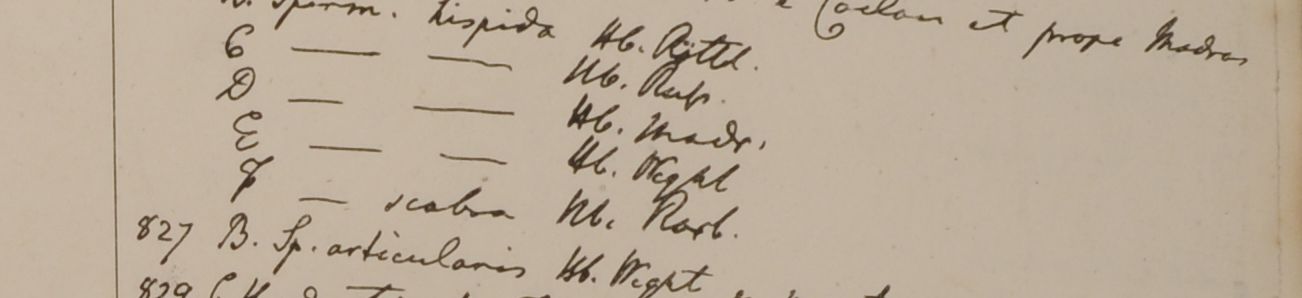 Sperm. hispida Hb. Rottl. et prope Madras
C — — Hb. Russ.
D — — Hb. Madr.
E — — Hb. Wight
F — scabra Hb. Roxb.
827 B. Sp. articularis Hb. Wight
829